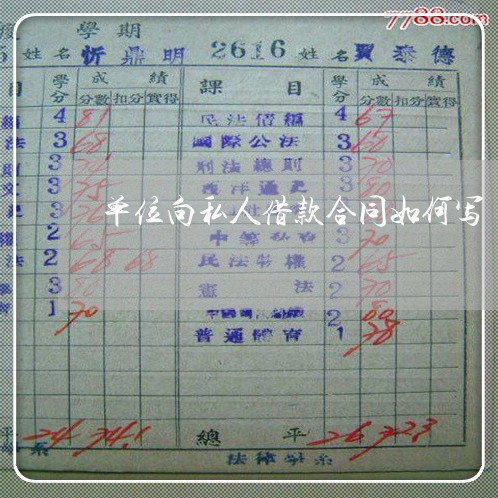 7788.com
學期
姓名 忻鼎明 2616 姓名 賈泰德
目 學分 成績 課目 學分 成績
分數 扣分 實得 分數 扣分 實得
4 81 民法債編 4 67
法 3 68 國際公法 3 60
3 刑法總則 3 70
文 3 75 西洋通史 3 80
3 76 3
單位向私人借款合同如何写
權 2 65 3 70
法 2 68 68 民法物權 2 65
3 80 憲法 2 70
1 70 2 80
普通體育 1 78
平 24 74.1 總平 26 72.3
系 法律學系